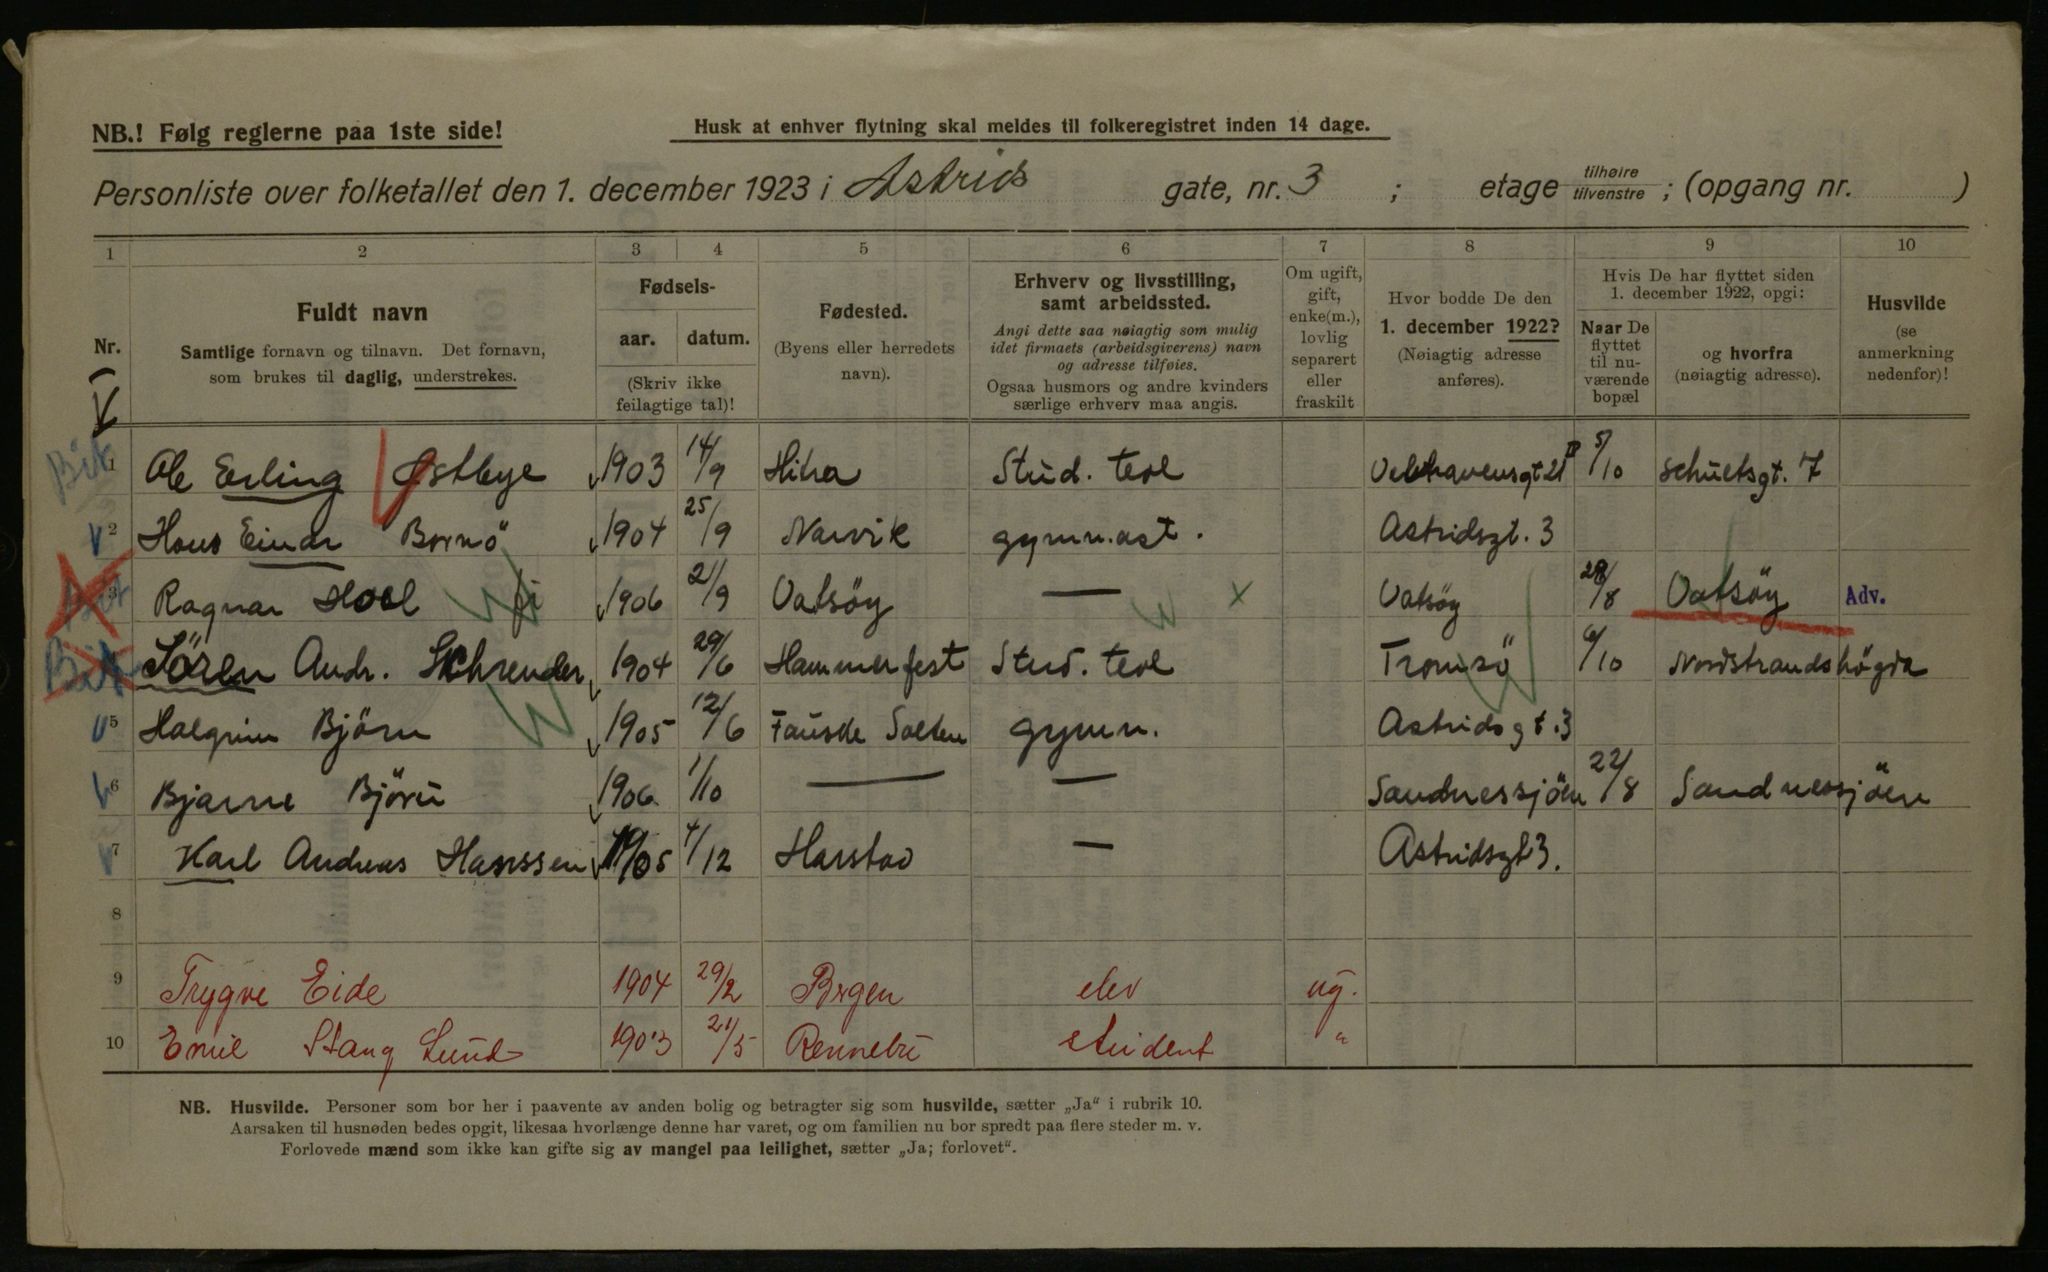 NB.! Følg reglerne paa 1ste side!
Husk at enhver flytning skal meldes til folkeregistret inden 14 dage.
Personliste over folketallet den 1. december 1923 i Astrids gate, nr. 3 ; etage tilhøire tilvenstre ; (opgang nr. )
1 2 3 4 5 6 7 8 9 10
Nr.
Fuldt navn
Samtlige fornavn og tilnavn. Det fornavn,
som brukes til daglig, understrekes.
Fødsels-
aar. datum.
(Skriv ikke
feilagtige tal)!
Fødested.
(Byens eller herredets
navn).
Erhverv og livsstilling,
samt arbeidssted.
Angi dette saa nøiagtig som mulig
idet firmaets (arbeidsgiverens) navn
og adresse tilføies.
Ogsaa husmors og andre kvinders
særlige erhverv maa angis.
Om ugift,
gift,
enke(m.),
lovlig
separert
eller
fraskilt
Hvor bodde De den
1. december 1922?
(Nøiagtig adresse
anføres).
Hvis De har flyttet siden
1. december 1922, opgi:
Naar De
flyttet
til nu-
værende
bopæl
og hvorfra
(nøiagtig adresse).
Husvilde
(se
anmerkning
nedenfor)!
1 Ole Erling Østbye 1903 14/9 Hitra Stud. teol 5/10 Schultsgt. 7
2 Hans Einar Bornö 1904 25/9 Narvik gymnast. Astridsgt. 3
3 Ragnar Hoel 1906 21/9 Vatsöy — Vatsöy 28/8 Vatsöy Adv.
4 Sören Andr. Schrender 1904 29/6 Hammerfest Stud. teol Tromsö 6/10 Nordstrandshögda
5 Halgrim Björn 1905 12/6 Fauske Salten gymn. Astridsgt. 3
6 Bjarne Björn 1906 1/10 — — Sandnessjöen 22/8 Sandnessjöen
7 Karl Andreas Hanssen 05 4/12 Harstad — Astridsgt 3.
8
9 Trygve Eide 1904 29/2 Bergen elev ug.
10 Emil Stang Lund 1903 21/5 Rennebu student "
NB. Husvilde. Personer som bor her i paavente av anden bolig og betragter sig som husvilde, sætter „Ja“ i rubrik 10.
Aarsaken til husnøden bedes opgit, likesaa hvorlænge denne har varet, og om familien nu bor spredt paa flere steder m. v.
Forlovede mænd som ikke kan gifte sig av mangel paa leilighet, sætter „Ja; forlovet“.